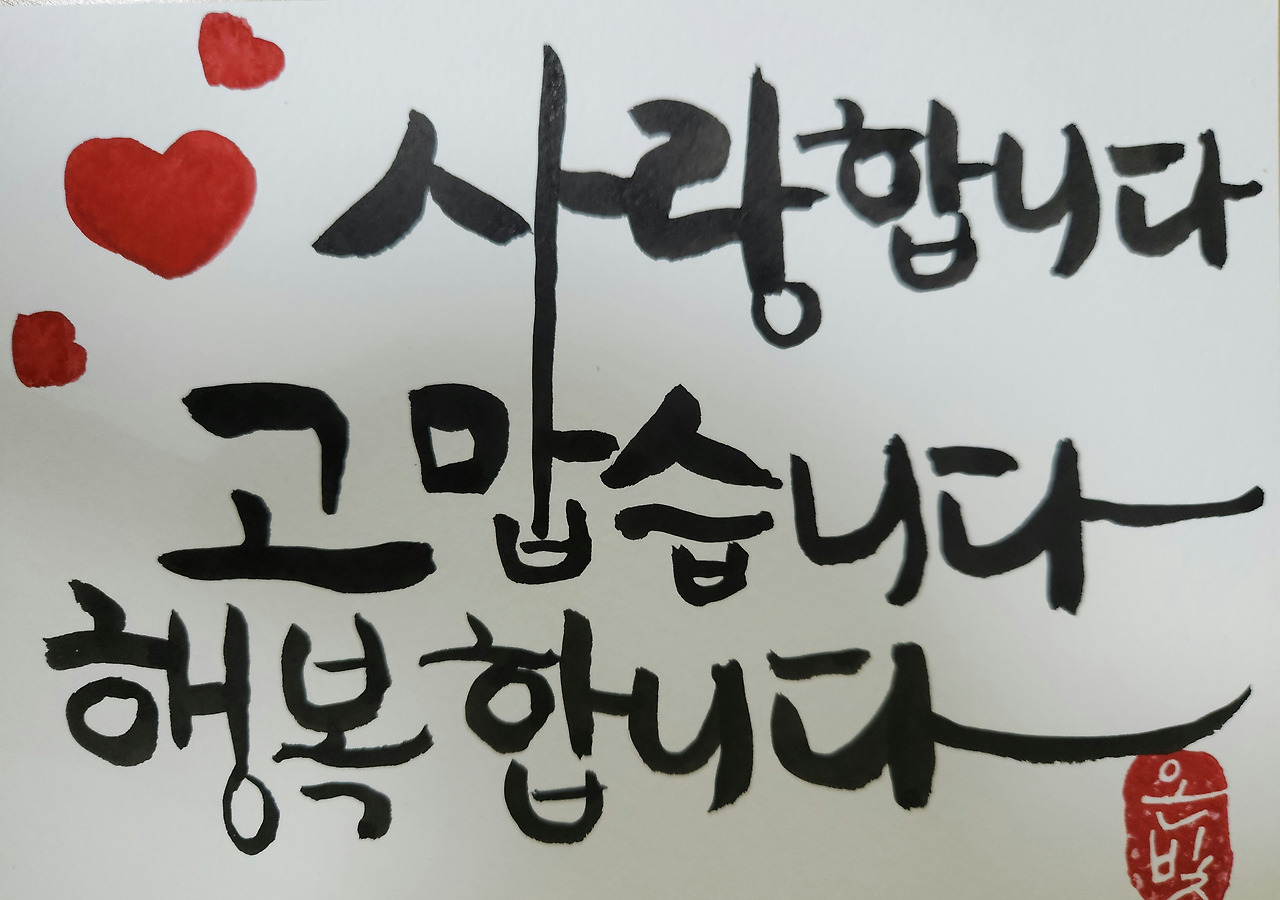 사랑합니다
고맙습니다
행복합니다
은빛